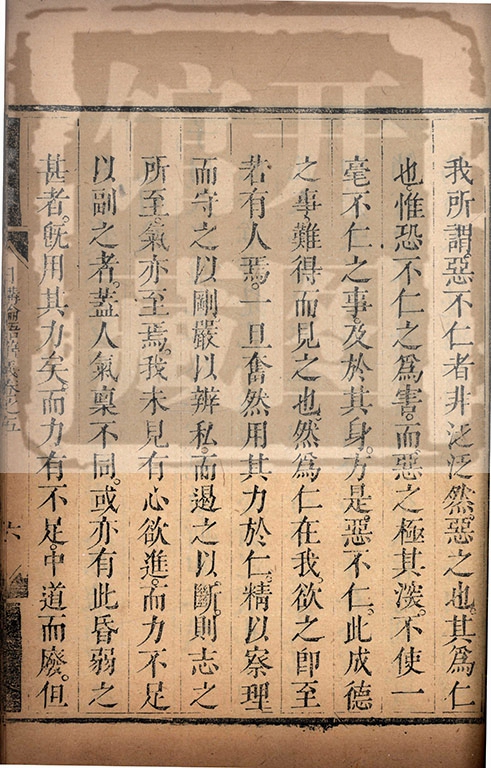 我所謂惡不仁者非泛泛然惡之也其爲仁
也惟恐不仁之爲害而惡之極其深不使一
毫不仁之事及於其身方是惡不仁此成德
之事難得而見之也然爲仁在我欲之卽至
若有人焉一旦奮然用其力於仁精以察理
而守之以剛嚴以辨私而遏之以斷則志之
所至氣亦至焉我未見有心欲進而力不足
以副之者蓋人氣稟不同或亦有此昏弱之
甚者旣用其力矣而力有不足中道而廢但
日講四書解義卷之五
六